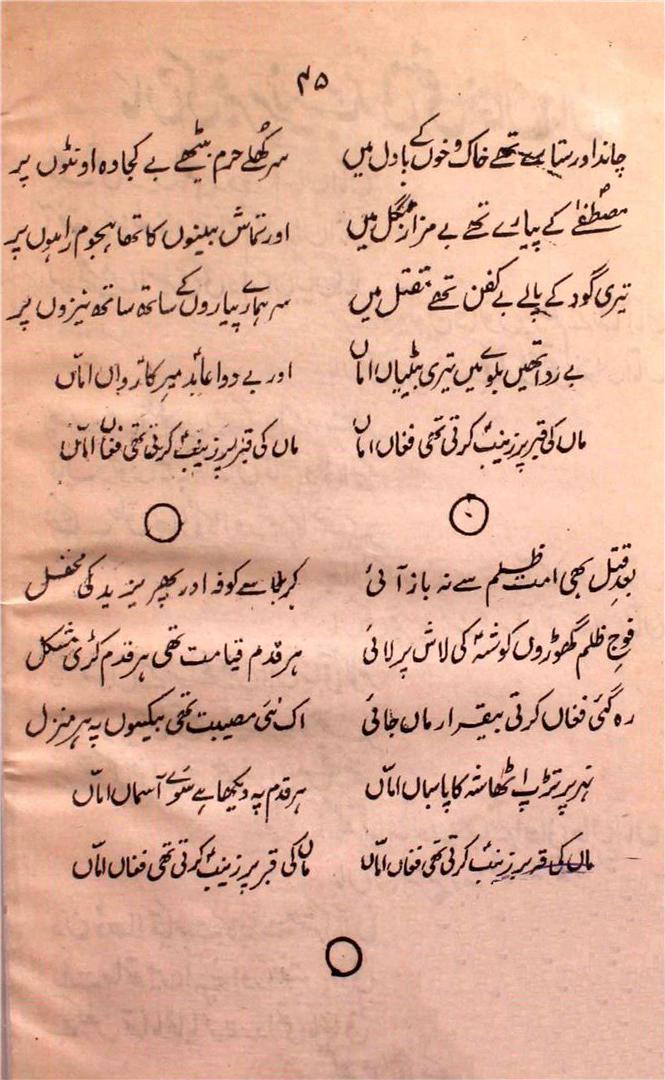 ۴۵
چاند اور ستارے تھے خاک و خوں کے بادل میں
مصطفےٰؐ کے پیارے تھے بے مزار جنگل میں
تیری گود کے پالے بے کفن تھے مقتل میں
بے ردا تھیں بلوے میں تیری بیٹیاں اماں
ماں کی قبر پر زینبؑ کرتی تھی فغاں اماں
سر کھلے حرم بیٹھے بے کجاوہ اونٹوں پر
اور تماش بینوں کا تھا ہجوم راہوں پر
سر ہمارے پیاروں کے ساتھ ساتھ نیزوں پر
اور بے دوا عابد میر کارواں اماں
ماں کی قبر پر زینبؑ کرتی تھی فغاں اماں
بعد قتل بھی امت ظلم سے نہ باز آئی
فوجِ ظلم گھوڑوں کو شہؑ کی لاش پر لائی
رہ گئی فغاں کرتی بیقرار ماں جائی
نہر پر تڑپ اٹھا شہ کا پاسباں اماں
ماں کی قبر پر زینبؑ کرتی تھی فغاں اماں
کربلا سے کوفہ اور پھر یزید کی محفل
ہر قدم قیامت تھی ہر قدم کڑی مشکل
اک نئی مصیبت تھی بیکسوں پہ ہر منزل
ہر قدم پہ دیکھا ہے سوئے آسماں اماں
ماں کی قبر پر زینبؑ کرتی تھی فغاں اماں